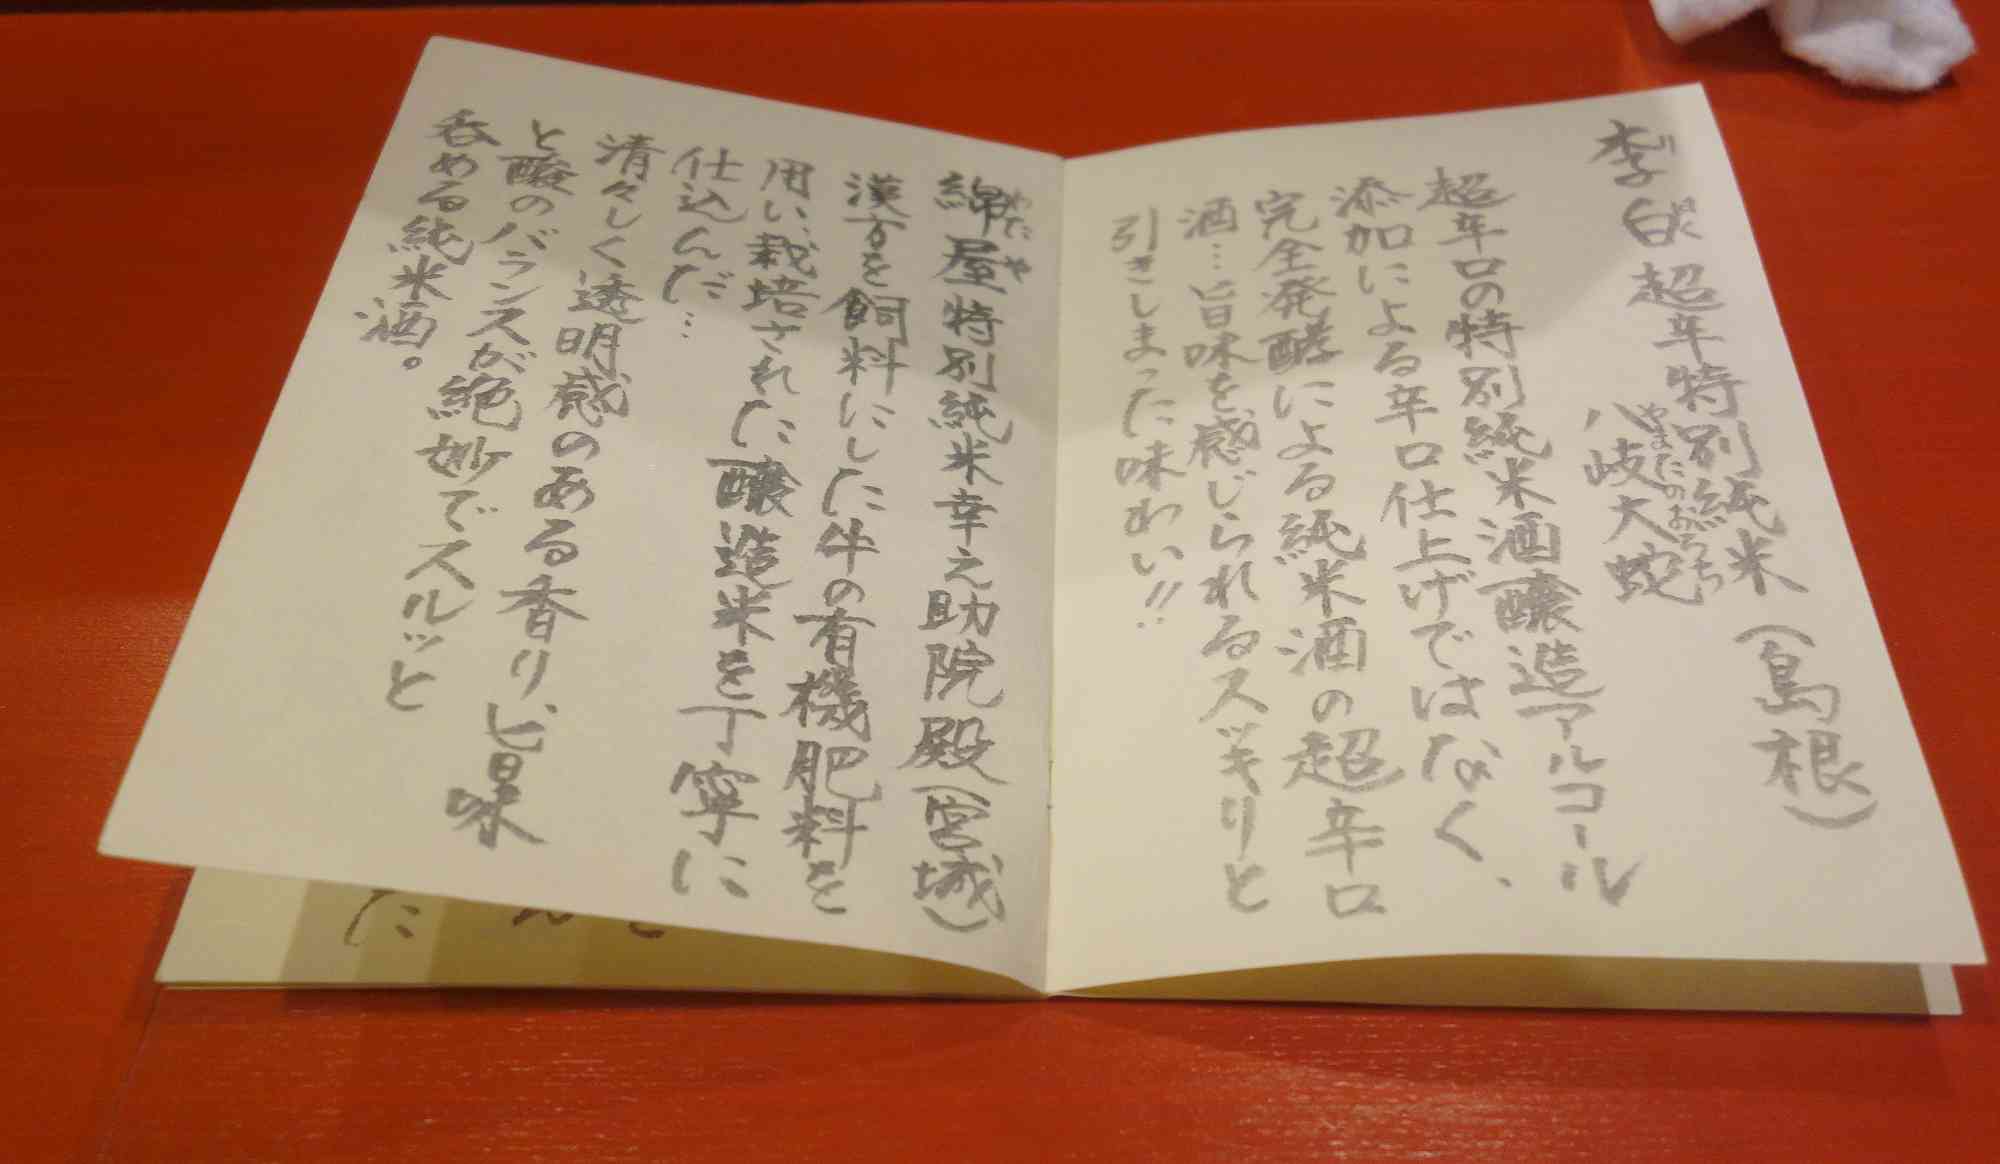 李白 超辛特別純米(島根)
八岐大蛇
超辛口の特別純米酒醸造アルコール
添加による辛口仕上げではなく、
完全発酵による純米酒の超辛口
酒…旨味を感じられるスッキリと
引きしまった味わい!!
綿屋特別純米幸之助院殿(宮城)
漢方を飼料にした牛の有機肥料を
用い、栽培された醸造米を丁寧に
仕込んだ…
清々しく透明感のある香り、旨味
と酸のバランスが絶妙でスルッと
呑める純米酒。